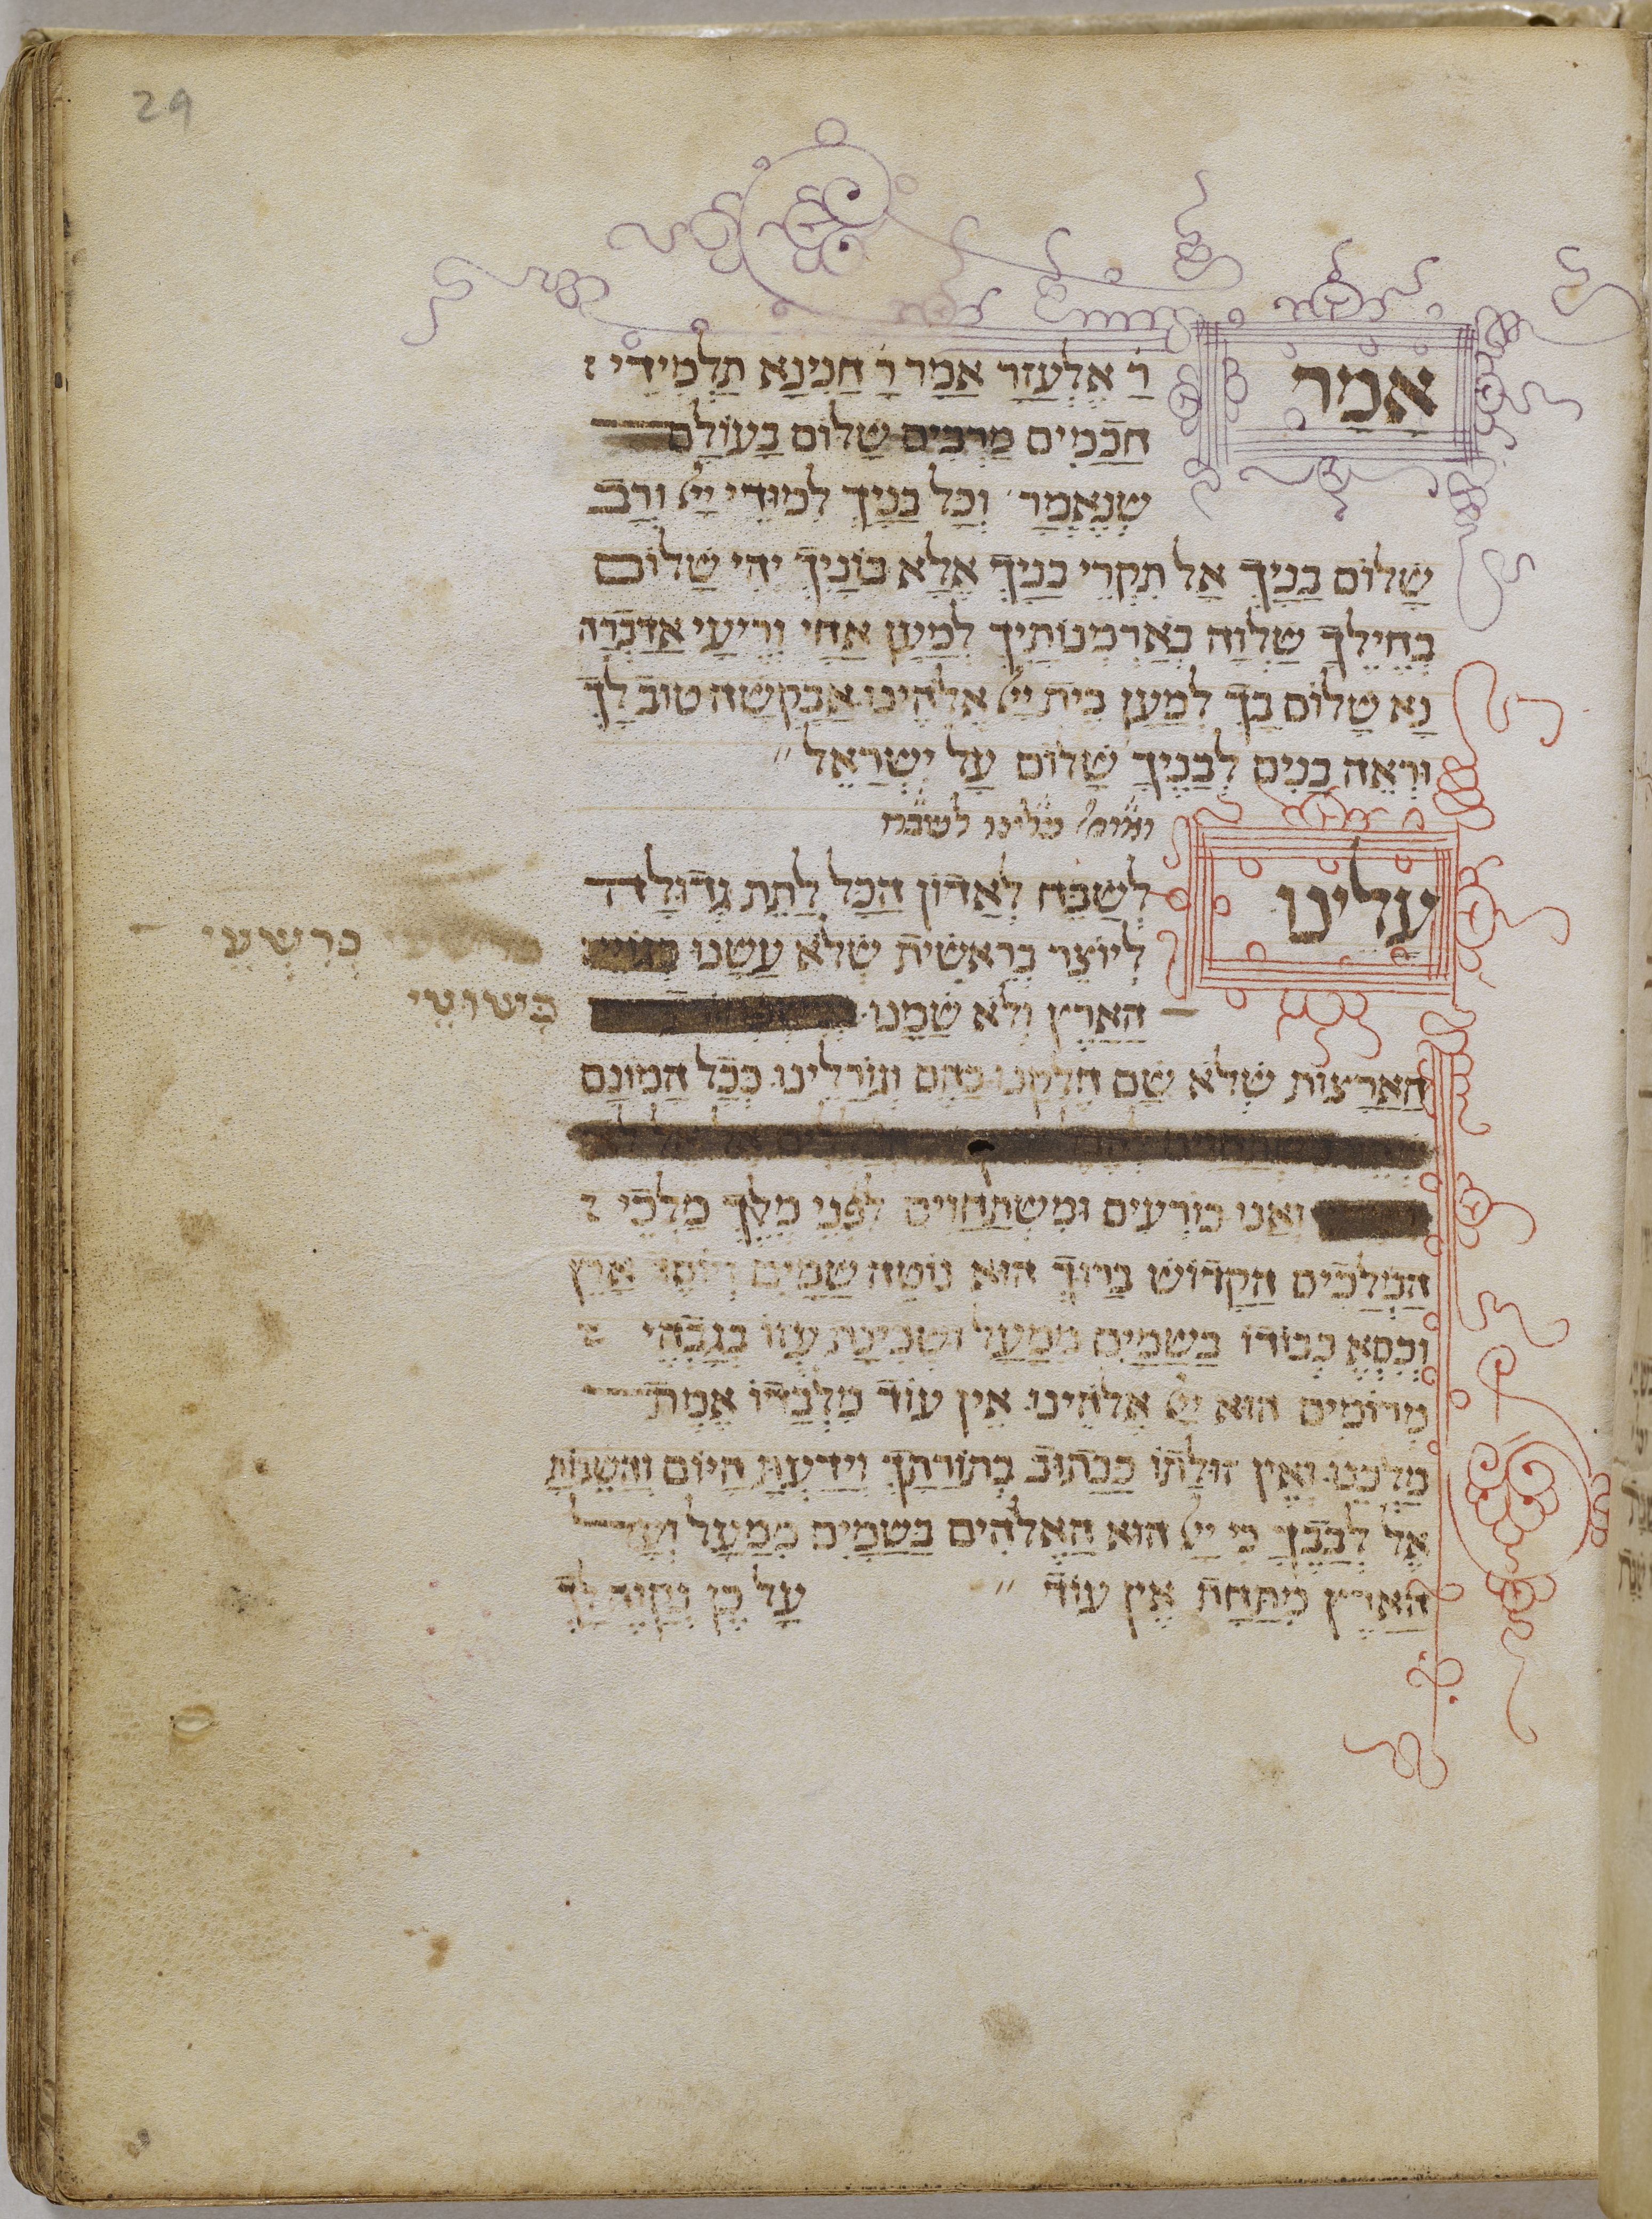 29
אָמַר
רַ֗ אֶלְעָזָר אָמַר רָ֗ חֲנִינָא תַלְמִידֵי
חֲכָמִים מַרְבִּים שָׁלוֹם בָּעוֹלָם
שֶׁנֶּאֱמַר וְכָל בָּנַיִךְ לִמּוּדֵי יְיָ וְרַב
שָׁלוֹם בָּנָיִךְ אַל תִּקְרֵי בָנַיִךְ אֶלָּא בוֹנַיִךְ יְהִי שָׁלוֹם
בְּחֵילֵךְ שַׁלְוָה בְּאַרְמְנוֹתָיִךְ לְמַעַן אַחַי וְרֵיעָי אֲדַבְּרָה
נָא שָׁלוֹם בָּךְ לְמַעַן בֵּית יְיָ אֱלֹהֵינוּ אֲבַקְשָׁה טוֹב לָךְ
וּרְאֵה בָנִים לְבָנֶיךָ שָׁלוֹם עַל יִשְׂרָאֵל
ואומ׳ עלינו לשבח
עָלֵינוּ
לְשַׁבֵּחַ לַאֲדוֹן הַכֹּל לָתֵת גְּדוּלָה
לְיוֹצֵר בְּרֵאשִׁית שֶׁלֹּא עָשָׂנוּ
כְּרִשְׁעֵי
הָאָרֶץ וְלֹא שָׂמָנוּ
הָאֲרָצוֹת שֶׁלֹּא שָׂם חֶלְקֵנוּ כָּהֶם וְגוֹרָלֵינוּ כְּכָל הֲמוֹנָם
וַאֲנוּ כּוֹרְעִים וּמִשְׁתַּחֲוִים לִפְנֵי מֶלֶךְ מַלְכֵי
הַמְּלָכִים הַקָּדוֹשׁ בָּרוּךְ הוּא נוֹטֶה שָׁמַיִם וְיוֹסֵד אָרֶץ
וְכִסֵּא כְבוֹדוֹ בַּשָּׁמַיִם מִמַּעַל וּשְׁכִינַת עֻזּוֹ בְּגָבְהֵי
מְרוֹמִים הוּא יְיָ אֱלֹהֵינוּ אֵין עוֹד מִלְבַדּוֹ אֱמֶת
מַלְכֵּנוּ וְאֵין זוּלָתוֹ כַּכָּתוּב בְּתוֹרָתָךְ וְיָדַעְתָּ הַיּוֹם וַהֲשֵׁבוֹתָ
אֶל לְבָבֶךָ כִּי יְיָ הוּא הָאֱלֹהִים בַּשָּׁמַיִם מִמַּעַל וְעַל
הָאָרֶץ מִתַּחַת אֵין עוֹד עַל כֵּן נְקַוֶּה לָּךְ